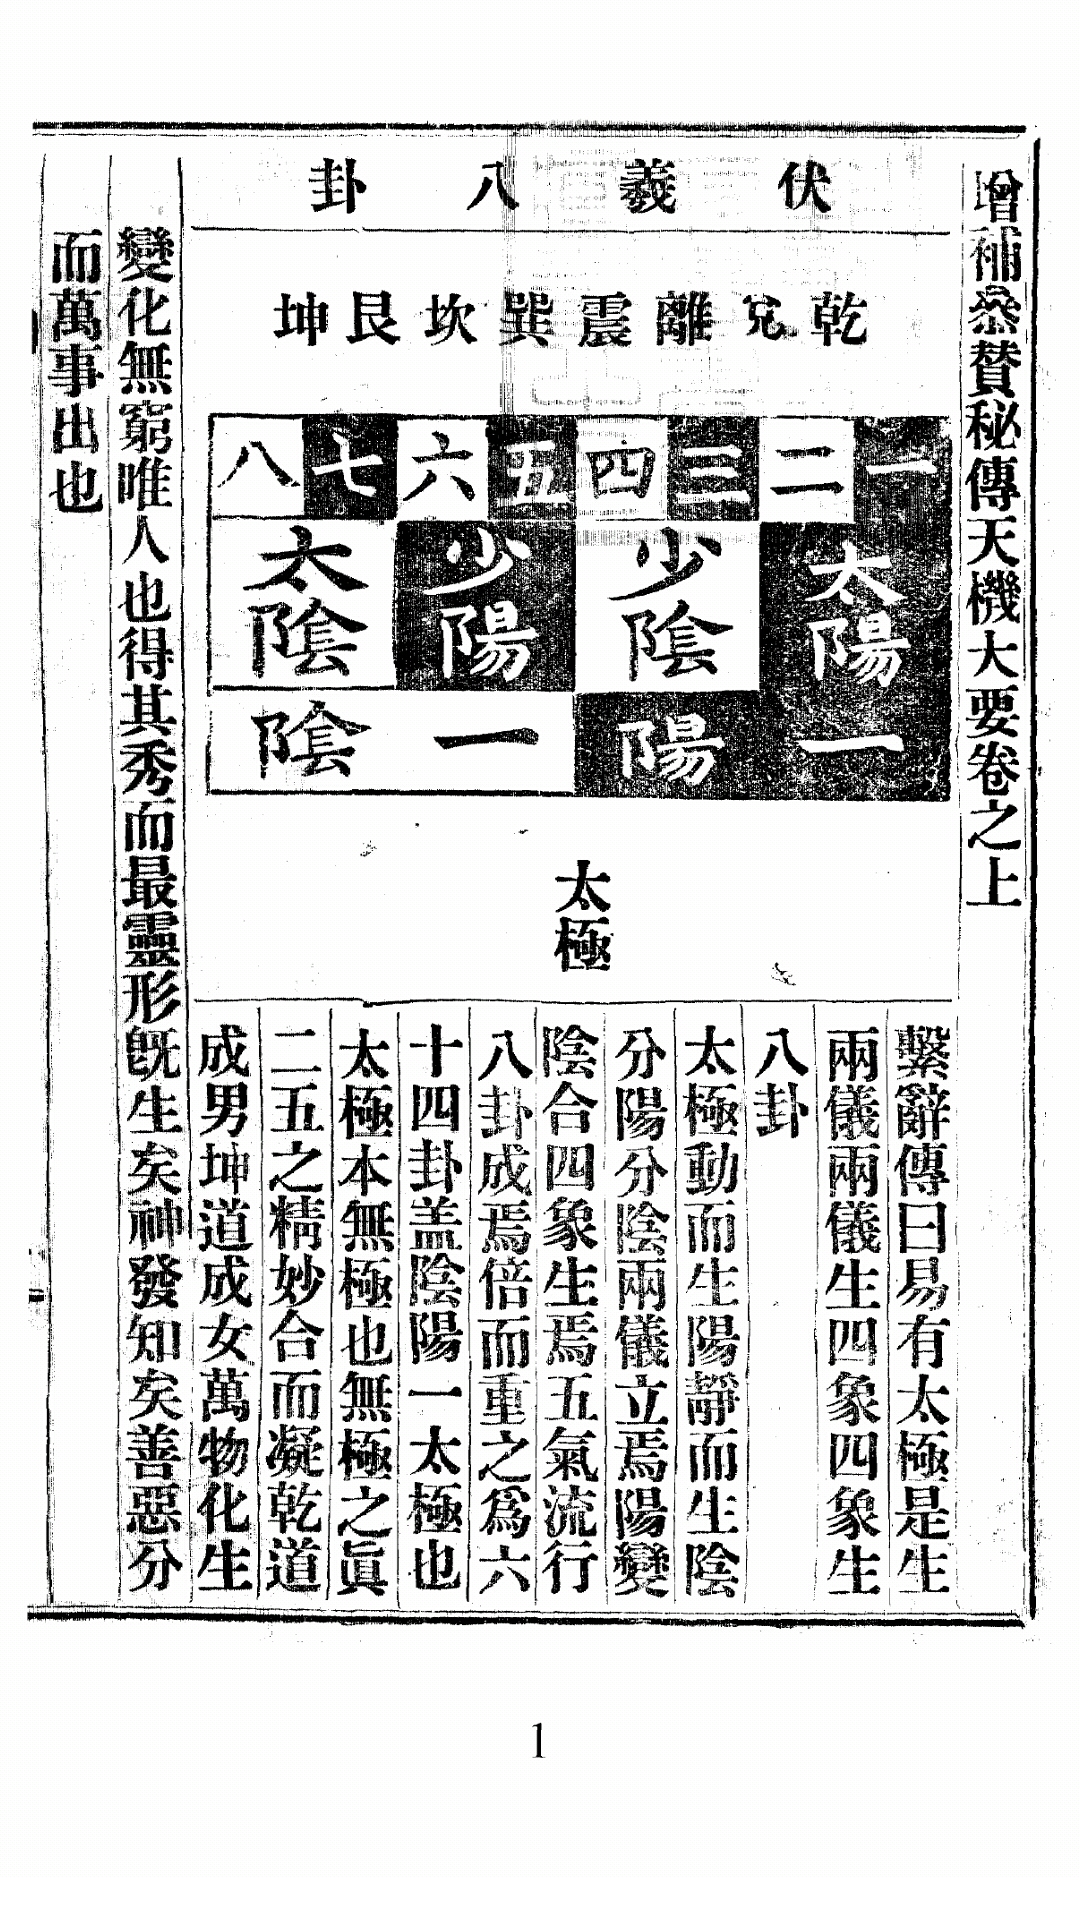 增補叅贊秘傳天機大要卷之上
伏羲八卦
乾兌離震巽坎艮坤
一二三四五六七八
太陽
少陰
少陽
太陰
一陽
一陰
太極
繫辭傳曰易有太極是生
兩儀兩儀生四象四象生
八卦
太極動而生陽靜而生陰
分陽分陰兩儀立焉陽變
陰合四象生焉五氣流行
八卦成焉倍而重之爲六
十四卦盖陰陽一太極也
太極本無極也無極之眞
二五之精妙合而凝乾道
成男坤道成女萬物化生
變化無窮唯人也得其秀而最靈形旣生矣神發知矣善惡分
而萬事出也
1